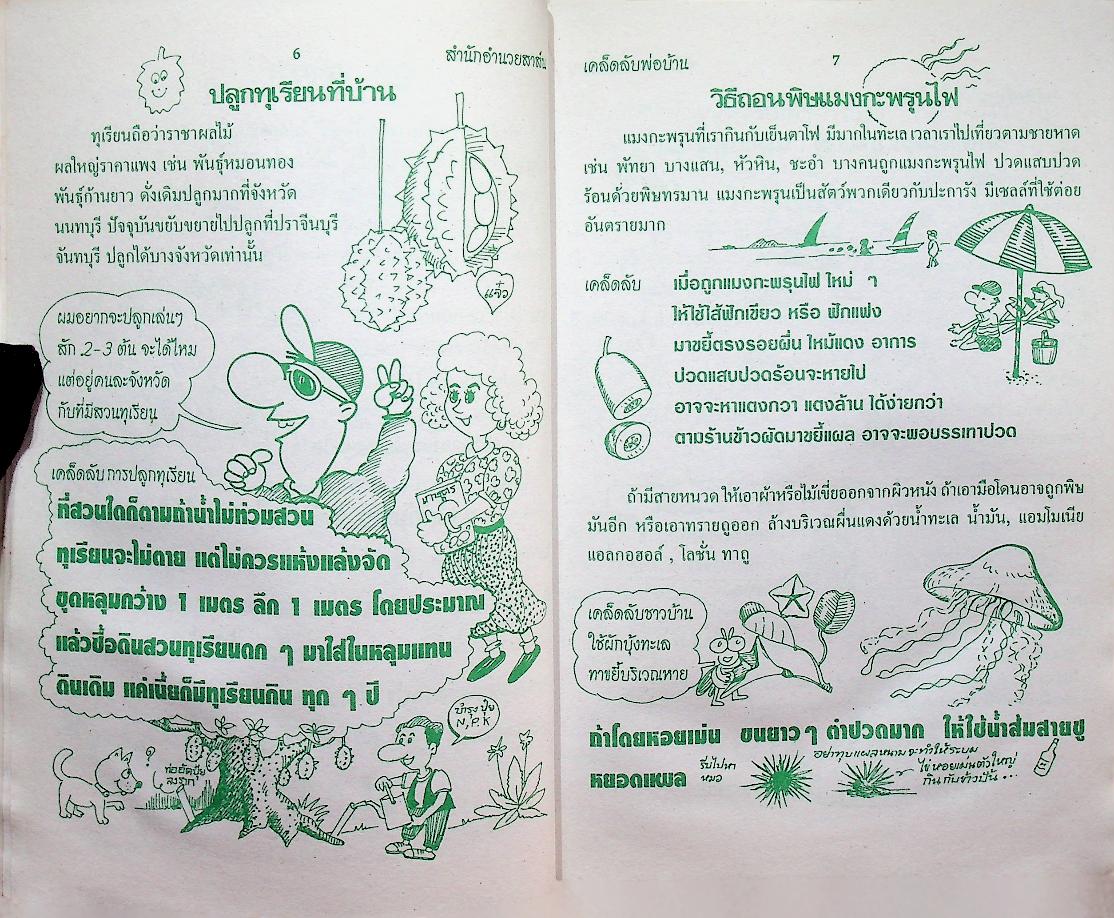 6
สำนักอำนวยสาส์น
ปลูกทุเรียนที่บ้าน
ทุเรียนถือว่าราชาผลไม้
ผลใหญ่ราคาแพง เช่น พันธุ์หมอนทอง
พันธุ์ก้านยาว ดั่งเดิมปลูกมากที่จังหวัด
นนทบุรี ปัจจุบันขยับขยายไปปลูกที่ปราจีนบุรี
จันทบุรี ปลูกได้บางจังหวัดเท่านั้น
แจ๋ว
ผมอยากจะปลูกเล่นๆ
สัก 2-3 ต้น จะได้ไหม
แต่อยู่คนละจังหวัด
กับที่มีสวนทุเรียน
เคล็ดลับการปลูกทุเรียน
ที่สวนใดก็ตามถ้าน้ำไม่ท่วมสวน
ทุเรียนจะไม่ตาย แต่ไม่ควรแห้งแล้งจัด
ขุดหลุมกว้าง 1 เมตร ลึก 1 เมตร โดยประมาณ
แล้วซื้อดินสวนทุเรียนดก ๆ มาใส่ในหลุมแทน
ดินเดิม แค่เนี่ยก็มีทุเรียนกิน ทุก ๆ ปี
บำรุงปุ๋ย
N, P, K
?
ท่ออัดปุ๋ย
ลงราก
เคล็ดลับพ่อบ้าน
7
วิธีถอนพิษแมงกะพรุนไฟ
แมงกะพรุนที่เรากินกับเย็นตาโฟ มีมากในทะเล เวลาเราไปเที่ยวตามชายหาด
เช่น พัทยา บางแสน, หัวหิน, ชะอำ บางคนถูกแมงกะพรุนไฟ ปวดแสบปวด
ร้อนด้วยพิษทรมาน แมงกะพรุนเป็นสัตว์พวกเดียวกับปะการัง มีเซลล์ที่ใช้ต่อย
อันตรายมาก
เคล็ดลับ เมื่อถูกแมงกะพรุนไฟ ใหม่ ๆ
ให้ใช้ไส้ฟักเขียว หรือ ฟักแฟง
มาขยี้ตรงรอยผื่น ไหม้แดง อาการ
ปวดแสบปวดร้อนจะหายไป
อาจจะหาแตงกวา แตงล้าน ได้ง่ายกว่า
ตามร้านข้าวผัดมาขยี้แผล อาจจะพอบรรเทาปวด
ถ้ามีสายหนวด ให้เอาผ้าหรือไม้เขี่ยออกจากผิวหนัง ถ้าเอามือโดนอาจถูกพิษ
มันอีก หรือเอาทรายถูออก ล้างบริเวณผื่นแดงด้วยน้ำทะเล น้ำมัน, แอมโมเนีย
แอลกอฮอล์ , โลชั่น ทาถู
เคล็ดลับชาวบ้าน
ใช้ผักบุ้งทะเล
ทาขยี้บริเวณหาย
ถ้าโดยหอยเม่น ขนยาว ๆ ตำปวดมาก ให้ใช้น้ำส้มสายชู
หยอดแผล รีบไปหา
หมอ
อย่าทุบแผลหนามจะทำให้ระบม
ไข่หอยเม่นตัวใหญ่
กินกับข้าวปั้น ...